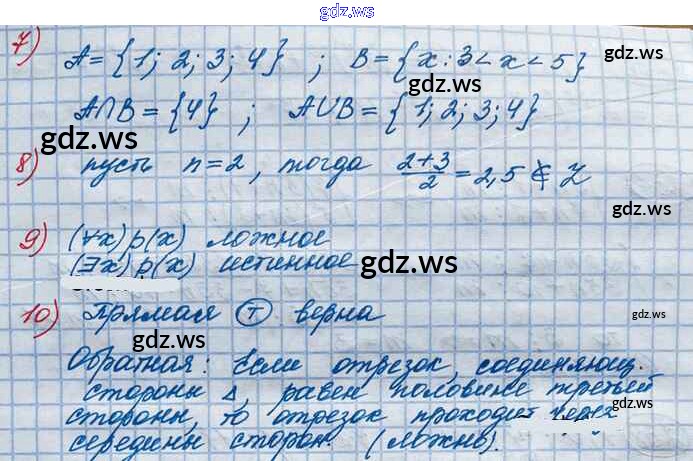 gdz.ws
7) A = {1; 2; 3; 4} ; B = {x : 3 < x < 5} gdz.ws
gdz.ws
A∩B = {4} ; A∪B = {1; 2; 3; 4}
gdz.ws
8) пусть n = 2, тогда (2+3)/2 = 2,5 ∉ Z
gdz.ws
9) (∀x) p(x) ложное
(∃x) p(x) истинное gdz.ws
10) Прямая Ⓣ верна gdz.ws
gdz.ws
Обратная: Если отрезок, соединяющ. gdz.ws
стороны △, равен половине третьей
стороны, то отрезок проходит через gdz.ws
середины сторон. (ложно).
gdz.ws